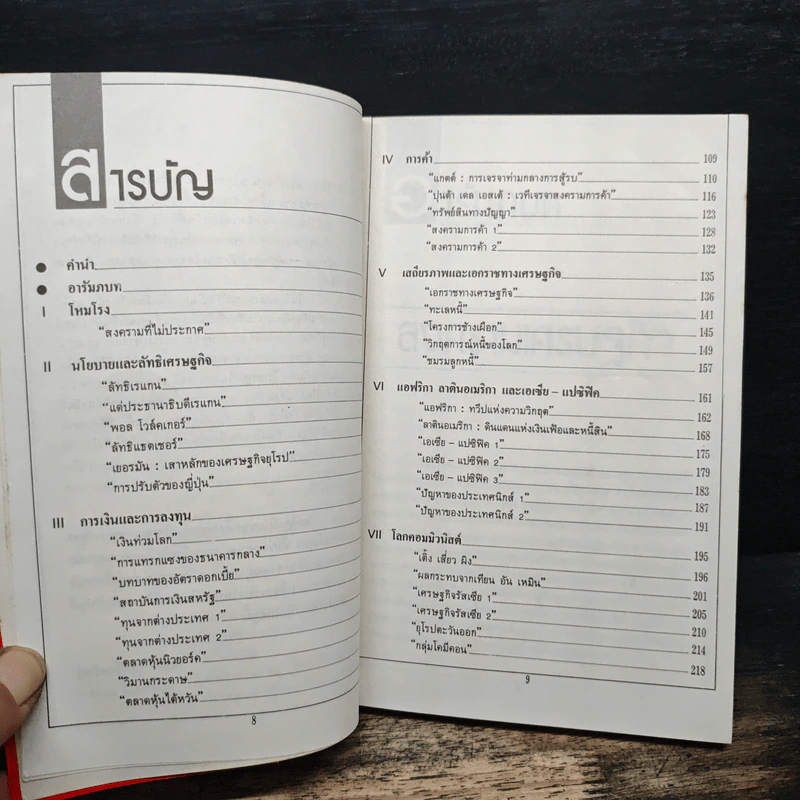 สารบัญ
คำนำ
อารัมภบท
I โหมโรง
“สงครามที่ไม่ประกาศ”
II นโยบายและลัทธิเศรษฐกิจ
“ลัทธิเรแกน”
“แด่ประธานาธิบดีเรแกน”
“พอล โวล์คเกอร์”
“ลัทธิแธตเชอร์”
“เยอรมัน : เสาหลักของเศรษฐกิจยุโรป”
“การปรับตัวของญี่ปุ่น”
III การเงินและการลงทุน
“เงินท่วมโลก”
“การแทรกแซงของธนาคารกลาง”
“บทบาทของอัตราดอกเบี้ย”
“สถาบันการเงินสหรัฐ”
“ทุนจากต่างประเทศ 1”
“ทุนจากต่างประเทศ 2”
“ตลาดหุ้นนิวยอร์ค”
“วิมานกระดาษ”
“ตลาดหุ้นไต้หวัน”
8
IV การค้า 109
“แกตต์ : การเจรจาท่ามกลางการสู้รบ” 110
“ปุนต้า เดล เอสเต้ : เวทีเจรจาสงครามการค้า” 116
“ทรัพย์สินทางปัญญา” 123
“สงครามการค้า 1” 128
“สงครามการค้า 2” 132
V เสถียรภาพและเอกราชทางเศรษฐกิจ 135
“เอกราชทางเศรษฐกิจ” 136
“ทะเลหนี้” 141
“โครงการช้างเผือก” 145
“วิกฤตการณ์หนี้ของโลก” 149
“ชมรมลูกหนี้” 157
VI แอฟริกา ลาตินอเมริกา และเอเซีย – แปซิฟิค 161
“แอฟริกา : ทวีปแห่งความวิกฤต” 162
“ลาตินอเมริกา : ดินแดนแห่งเงินเฟ้อและหนี้สิน” 168
“เอเซีย – แปซิฟิค 1” 175
“เอเซีย – แปซิฟิค 2” 179
“เอเซีย – แปซิฟิค 3” 183
“ปัญหาของประเทศนิกส์ 1” 187
“ปัญหาของประเทศนิกส์ 2” 191
VII โลกคอมมิวนิสต์ 195
“เติ้ง เสี่ยว ผิง” 196
“ผลกระทบจากเทียน อัน เหมิน” 201
“เศรษฐกิจรัสเซีย 1” 205
“เศรษฐกิจรัสเซีย 2” 210
“ยุโรปตะวันออก” 214
“กลุ่มโคมีคอน” 218
9